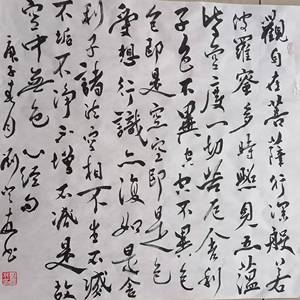 觀自在菩薩行深般若
波羅蜜多時照見五蘊
皆空度一切苦厄舍利
子色不異空空不異色
色即是空空即是色
受想行識亦復如是舍
利子諸法空相不生不滅
不垢不淨不增不減是故
空中無色 心經句
庚子 月